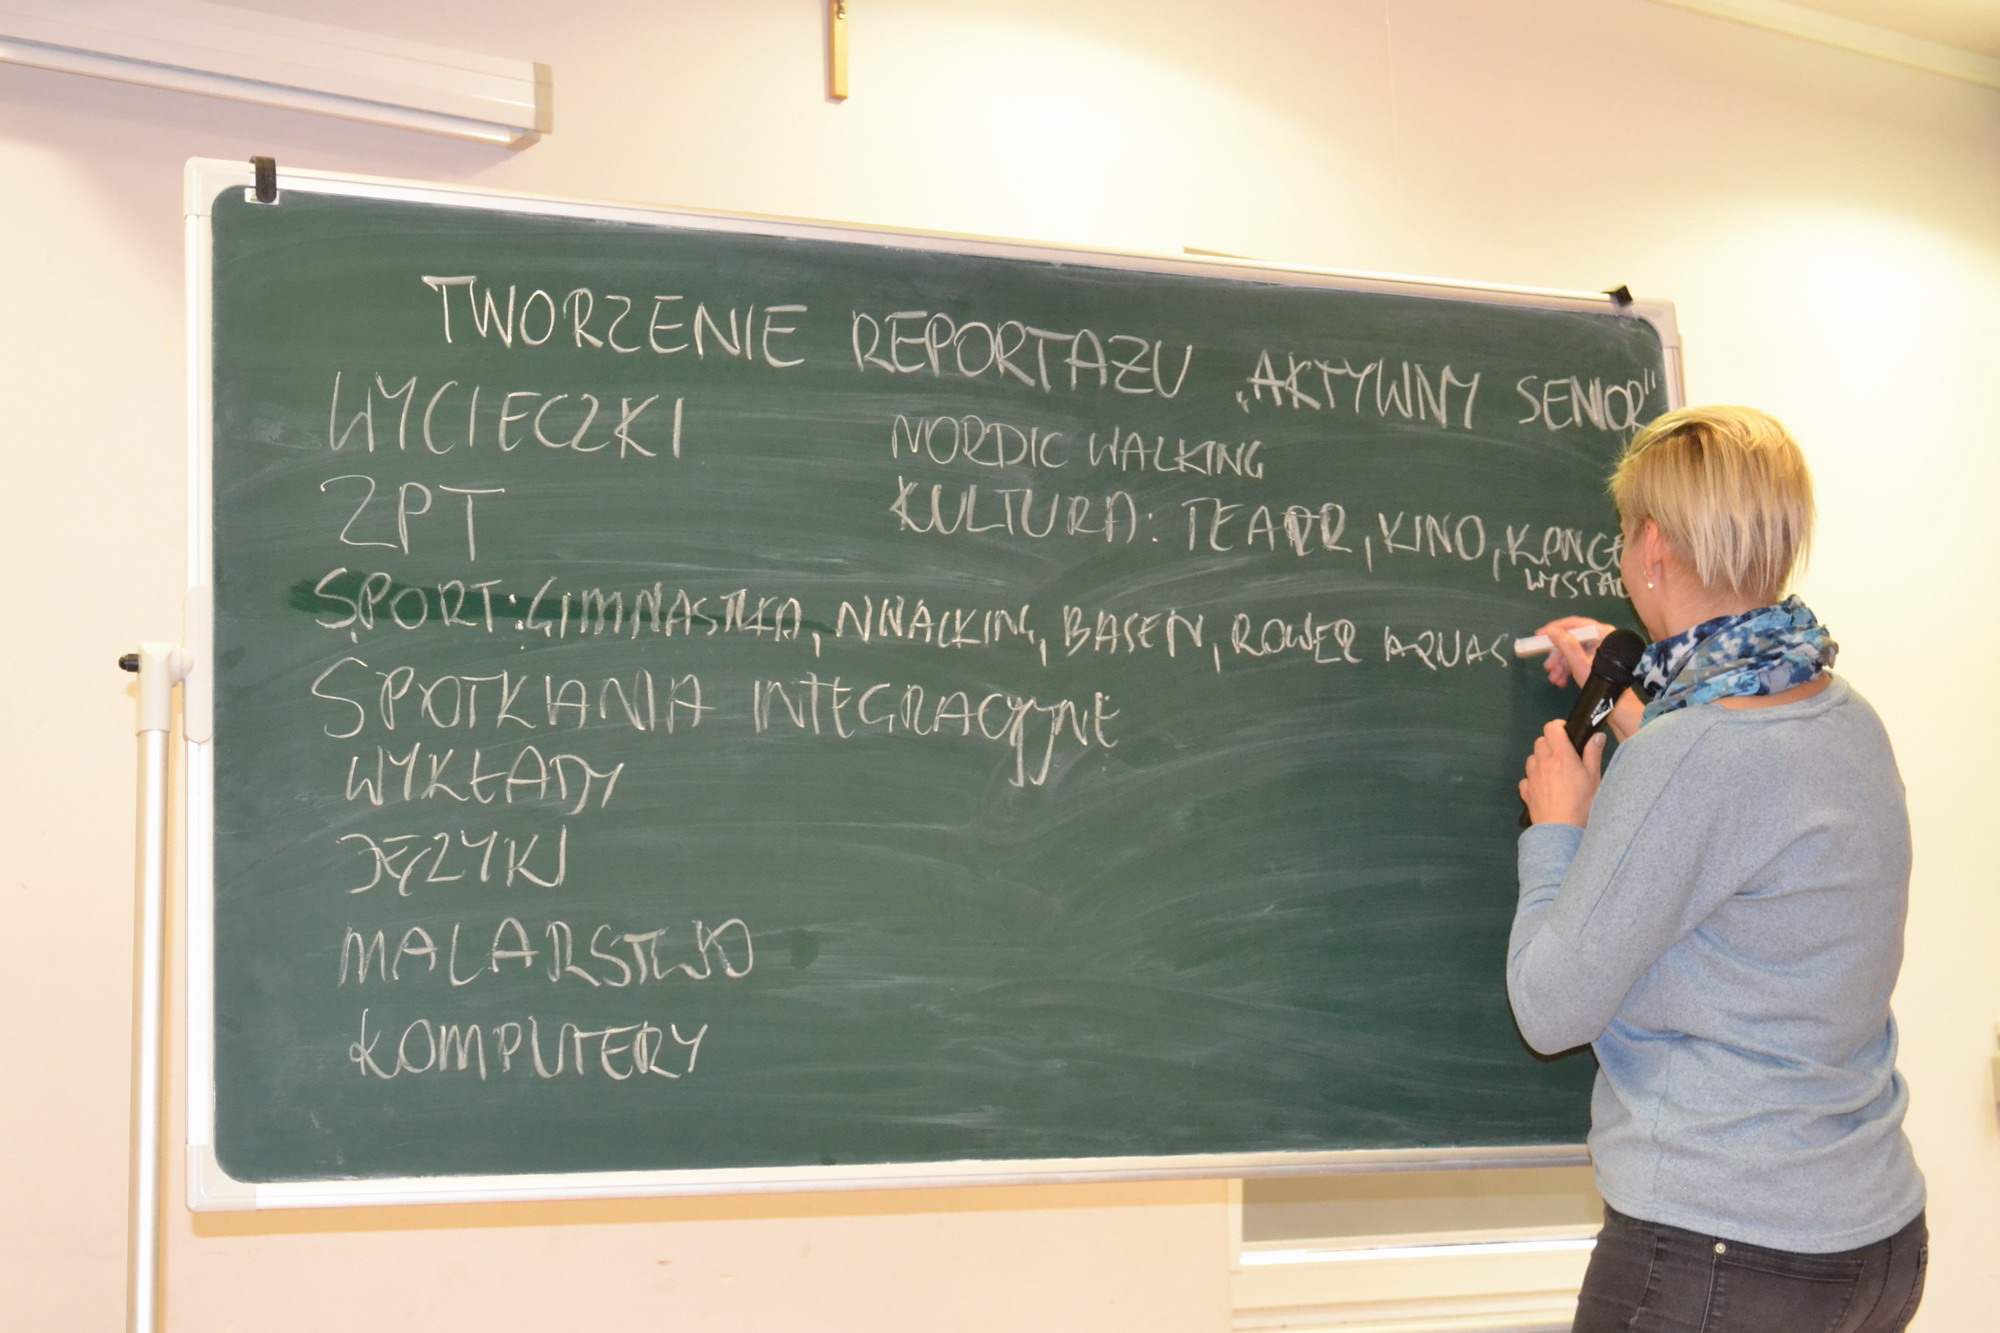 TWORZENIE REPORTAŻU „AKTYWNY SENIOR"
WYCIECZKI
ZPT
SPORT: GIMNASTYKA, NWALKING, BASEN, ROWER
SPOTKANIA INTEGRACYJNE
WYKŁADY
JĘZYKI
MALARSTWO
KOMPUTERY
NORDIC WALKING
KULTURA: TEATR, KINO, KONCE
WYSTA